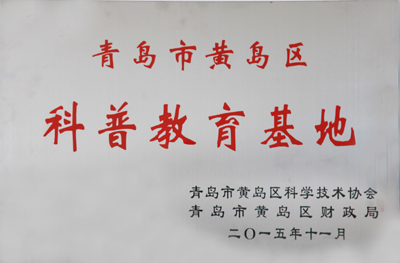 青岛市黄岛区
科普教育基地
青岛市黄岛区科学技术协会
青岛市黄岛区财政局
二〇一五年十一月